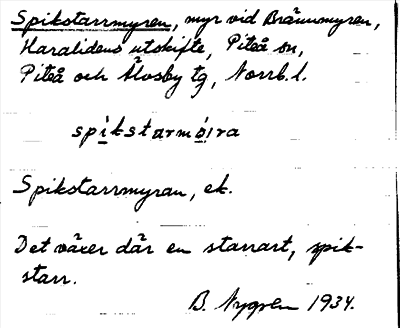 Spikstarrmyren, myr vid Brännmyren,
Haralidens utskifte, Piteå sn,
Piteå och Älvsby tg, Norrb. l.
spíkstarmỏ́ıra
Spikstarrmyran, ek.
Det växer där en starrart, spik-
starr.
B. Nygren 1934.